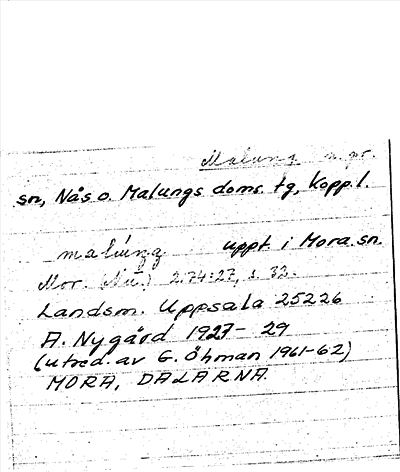 Malung n. pr.
sn, Nås o. Malungs doms. tg, Kopp. l.
malúŋg uppt. i Mora sn.
Mor. 2:74:27, s. 33.
Landsm. Uppsala 25226
A. Nygård 1927-29
(utred. av G. Öhman 1961-62)
MORA, DALARNA.